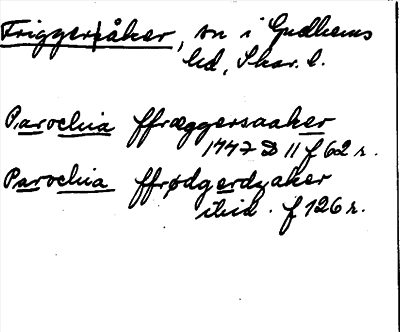 Friggeråker, sn i Gudhems
hd, Skar. l.
Parochia ffræggersaaker
1447 D 11 f 62 r.
Parochia ffrødgerdzaker
ibid. f 126 r.